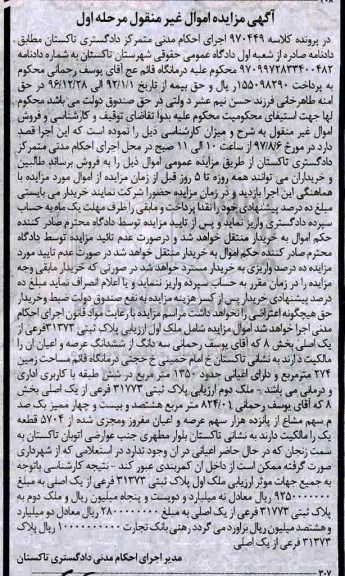 آگهی مزایده اموال غیر منقول مرحله اول
در پرونده کلاسه ۹۷۰۴۴۹ اجرای احکام مدنی متمرکز دادگستری تاکستان مطابق
دادنامه صادره از شعبه اول دادگاه عمومی حقوقی شهرستان تاکستان به شماره دادنامه
۹۷۰۹۹۷۲۸۳۳۴۰۰۴۸۲ محکوم علیه درمانگاه قائم عج آقای یوسف رحمانی محکوم
به پرداخت ۱۵۵۰۹۸۲۹۰ ریال و حق بیمه از تاریخ ۹۲/۱/۱ الی ۹۶/۱۲/۲۸ در حق
امنه طاهرخانی فرزند حسن نیم عشر دولتی در حق صندوق دولت می باشد محکوم
لها جهت استیفای محکومیت محکوم علیه بدوا تقاضای توقیف و کارشناسی و فروش
اموال غیر منقول به شرح و میزان کارشناسی ذیل را نموده است که این اجرا قصد
دارد در مورخ ۹۷/۸/۶ از ساعت ۱۰ الی ۱۱ صبح در محل اجرای احکام مدنی متمرکز
دادگستری تاکستان از طریق مزایده عمومی اموال ذیل را به فروش برساند طالبین
و خریداران می توانند همه روزه تا ۵ روز قبل از زمان مزایده از اموال مورد مزایده با
هماهنگی این اجرا بازدید و در زمان مزایده حضورا شرکت نمایند خریدار می بایستی
مبلغ ده درصد پیشنهادی خود را نقدا پرداخت و مابقی را ظرف مهلت یک ماه به حساب
سپرده دادگستری واریز نماید و پس از تایید مزایده توسط دادگاه محترم صادر کننده
حکم اموال به خریدار منتقل خواهد شد و درصورت عدم تائید مزایده توسط دادگاه
محترم صادر کننده حکم اموال به خریدار منتقل خواهد شد در صورت عدم تایید مورد
مزایده ده درصد واریزی به خریدار مسترد خواهد شد در صورتی که خریدار مابقی وجه
مزایده را در زمان مقرر به حساب سپرده واریز ننماید و یا اعلام انصراف نماید مبلغ ده
درصد پیشنهادی خریدار پس از کسر هزینه مزایده به نفع صندوق دولت ضبط و خریدار
حق هیچگونه اعتراضی را نخواهد داشت مراسم مزایده با رعایت مواد قانون اجرای احکام
مدنی اجرا خواهد شد اموال مزایده شامل ملک اول ارزیابی پلاک ثبتی ۳۱۳۷۳ فرعی از
یک اصلی بخش ۸ که آقای یوسف رحمانی سه دانگ از ششدانگ عرصه و اعیان آن را
مالکیت دارند به نشانی تاکستان خ امام خمینی خ حجتی درمانگاه قائم مساحت زمین
۲۷۴ مترمربع و دارای اعیانی حدود ۱۳۵۰ متر مربع در شش طبقه با کاربری اداری
و درمانی می باشد - ملک دوم ارزیابی پلاک ثبتی ۳۱۷۷۳ فرعی از یک اصلی بخش
۸ که آقای یوسف رحمانی ۸۲۴/۰۱ متر مربع هشتصد و بیست و چهار ممیز یک صد
م سهم مشاع از پانزده هزار سهم عرصه و اعیان مفروز ومجزی شده از ۵۷۰۴ قطعه
یک را مالکیت دارند به نشانی تاکستان بلوار مطهری جنب عوارضی اتوبان تاکستان به
سمت زنجان که در حال حاضر اعیانی در آن وجود ندارد در استعلامی که از شهرداری
صورت گرفته ممکن است از داخل آن کمربندی عبور کند - نتیجه کارشناسی باتوجه
به جمیع جهات موثر ارزیابی ملک اول پلاک ثبتی ۳۱۳۷۳ فرعی از یک اصلی به مبلغ
۹۲۵۰۰۰۰۰۰۰ ریال معادل نه میلیارد و دویست و پنجاه میلیون ریال و ملک دوم به
پلاک ثبتی ۳۱۷۷۳ فرعی از یک اصلی به مبلغ ۲۸۰۰۰۰۰۰۰۰ ریال معادل دو میلیارد
و هشتصد میلیون ریال براورد می گردد رهنی بانک تجارت ۱۰۰۰۰۰۰۰۰۰۰ ریال پلاک
۳۱۳۷۳ فرعی از یک اصلی
مدیر اجرای احکام مدنی دادگستری تاکستان
۳۰۷